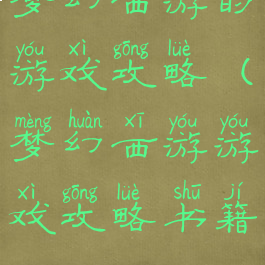 梦幻西游的
yóu xì gōng lüè
游戏攻略（
mèng huàn xī yóu yóu
梦幻西游游
xì gōng lüè shū jí
戏攻略书籍